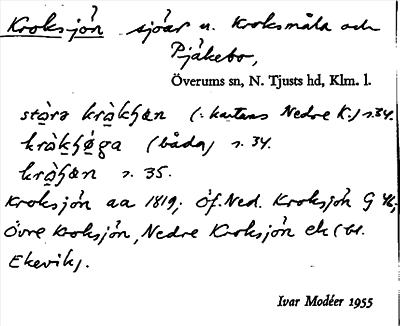 Kroksjön sjöar n. Kroksmåla och
Pjäkebo,
Överums sn, N. Tjusts hd, Klm. l.
(: kartans Nedre K.) s. 34.
(båda) s. 34.
s. 35.
Kroksjön aa 1819; Öf. Ned. Kroksjön G 46;
Övre Kroksjön, Nedre Kroksjön ek (bl.
Ekevik).
Ivar Modéer 1955